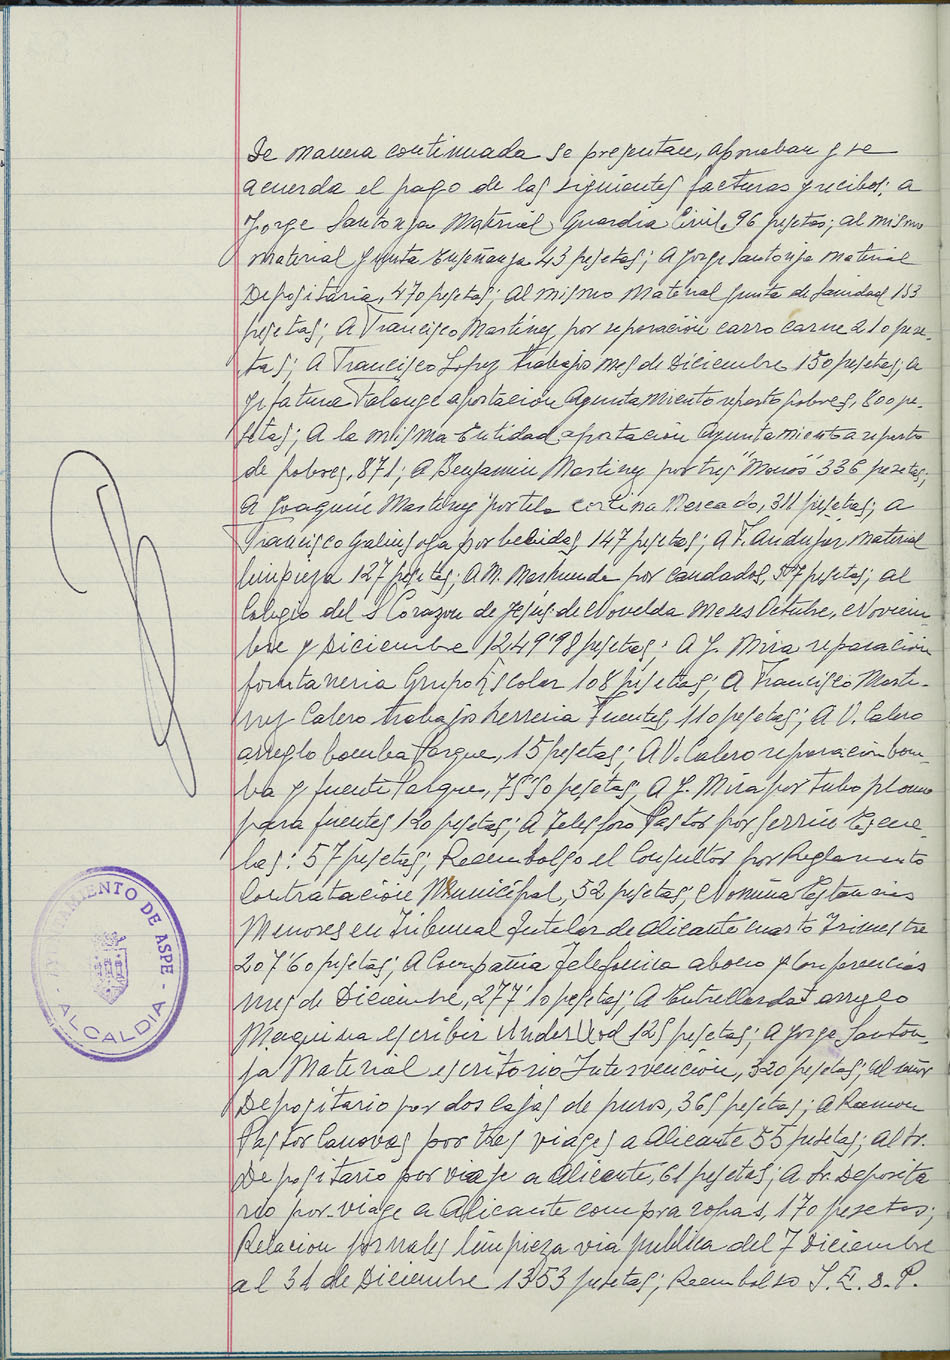 De manera continuada se presentan, aprueban y se
acuerda el pago de las siguientes facturas y recibos: a
Jorge Santonja Material Guardia Civil, 96 pesetas; al mismo
material Junta Enseñanza 43 pesetas; A Jorge Santonja material
Depositaria, 470 pesetas; Al mismo Material Junta de Sanidad 153
pesetas; A Francisco Martinez por reparación carro carne 210 pese-
tas; A Francisco Lopez trabajo mes de Diciembre 150 pesetas; a
Jefatura Falange aportación Ayuntamiento reparto pobres, 800 pe-
setas; A la misma Entidad aportación Ayuntamiento a reparto
de pobres, 871; A Benjamin Martinez por tres "Monos" 336 pesetas;
A Joaquin Martinez por tela cortina Mercado, 311 pesetas; a
Francisco Galinsoga por bebidas 147 pesetas; A F. Andújar material
limpieza 127 pesetas; A M. por candados, 57 pesetas; al
Colegio del S Corazon de Jesús de Novelda meses Octubre, Noviem-
bre y Diciembre 1249'98 pesetas; A J. Mira reparación
fontaneria Grupo Escolar 108 pesetas; A Francisco Marti-
nez Calero trabajos herreria Fuentes, 110 pesetas; A V. Calero
arreglo bomba Parque, 15 pesetas; A V. Calero reparación bom-
ba y fuente Parque, 75'50 pesetas, A J. Mira por tubo plomo
para fuentes 120 pesetas; A Telesforo Pastor por Servicio Escue-
las: 57 pesetas; Reembolso el Consultor por Reglamento
Contratación Municipal, 52 pesetas; Nomina Estancias
Menores en Tribunal Tutelar de Alicante cuarto Trimestre
207'60 pesetas; A Compañia Telefonica abono y Conferencias
mes de Diciembre, 277'10 pesetas; A arreglo
Maquina escribir UnderUod 125 pesetas; A Jorge Santon-
ja Material escritorio Intervención, 320 pesetas; al señor
Depositario por dos cajas de puros, 365 pesetas; A Ramon
Pastor Canovas por tres viages a Alicante 55 pesetas; Al Sr.
Depositario por viaje a Alicante, 61 pesetas; A Sr. Deposita
rio por viage a Alicante compra ropas, 170 pesetas;
Relacion jornales limpieza via publica del 7 Diciembre
al 31 de Diciembre 1353 pesetas; Reembolso S. E. D. P.
AYUNTAMIENTO DE ASPE
- ALCALDIA -